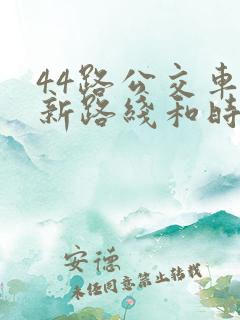 44路公交车
新路线和时
安德
未经同意禁止转载